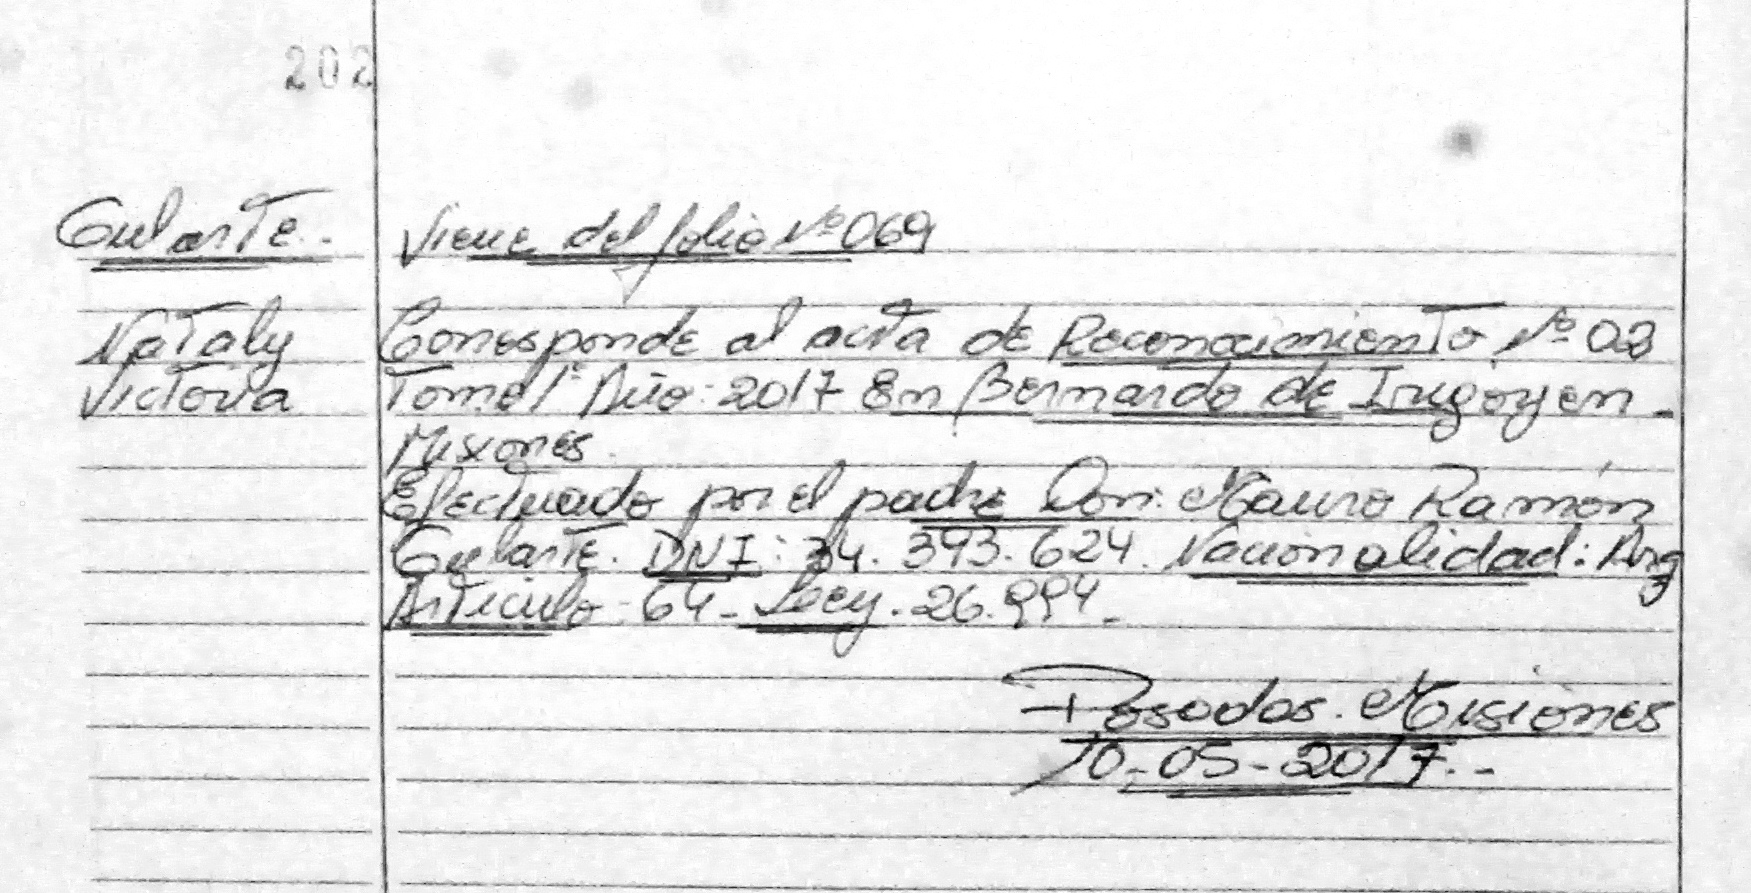 202
Gularte.
Viene del folio Nº 069
Nataly
Victoria
Corresponde al acta de Reconocimiento Nº 03
Tomo 1º Año: 2017 En Bernardo de Irigoyen -
Misiones.
Efectuado por el padre Don: Mauro Ramón
Gularte. DNI: 34.393.624. Nacionalidad: Arg
Artículo: 64 - Ley. 26.994 -
Posadas. Misiones
10-05-2017.-